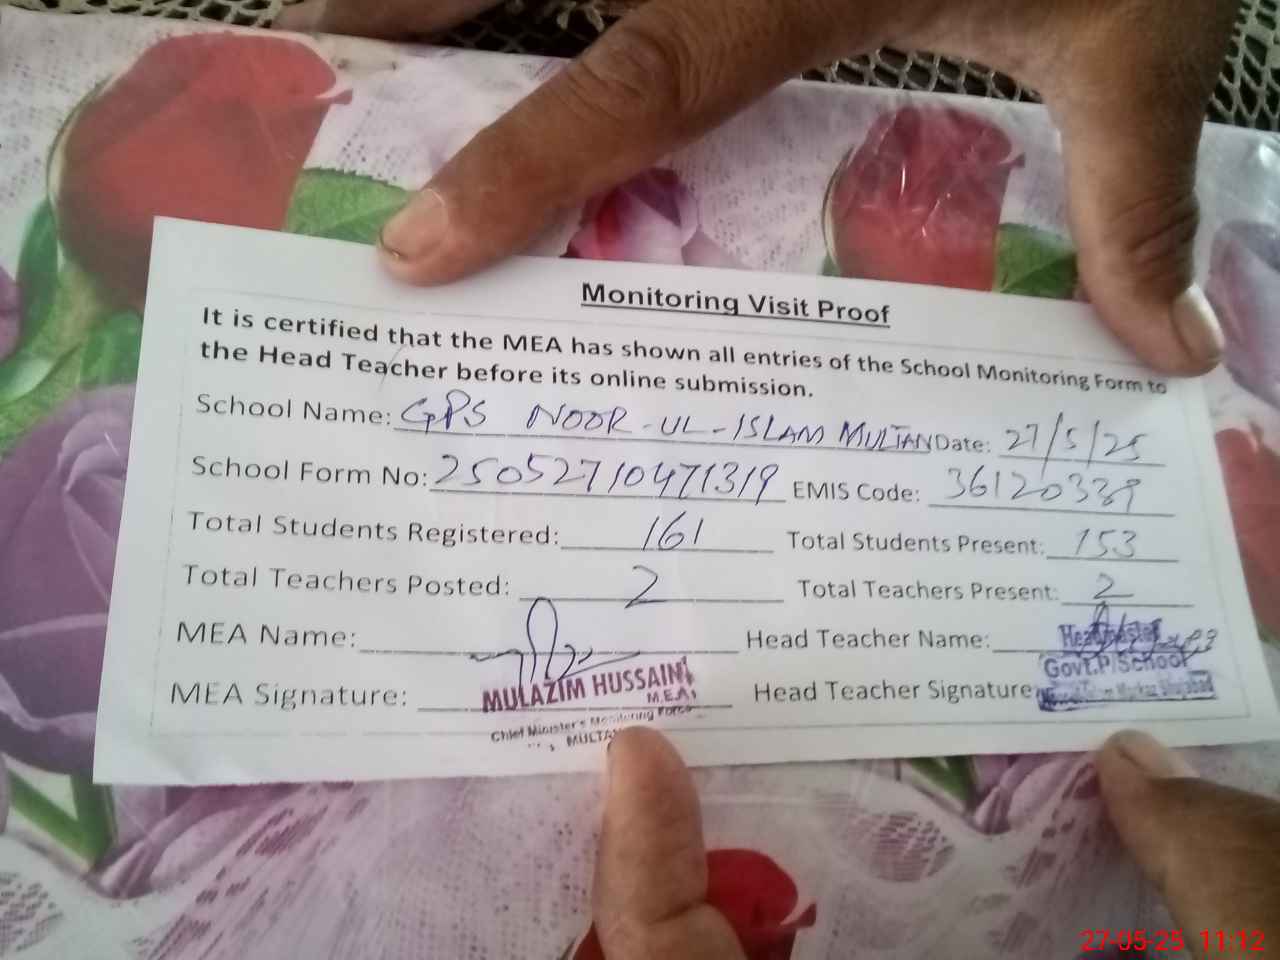 Monitoring Visit Proof
It is certified that the MEA has shown all entries of the School Monitoring Form to
the Head Teacher before its online submission.
School Name: GPS NOOR-UL-ISLAM MULTAN Date: 27/5/25
School Form No: 25052710471319 EMIS Code: 36120339
Total Students Registered: 161 Total Students Present: 153
Total Teachers Posted: 2 Total Teachers Present: 2
MEA Name: Head Teacher Name: Headmaster
Govt. P/School
MEA Signature: MULAZIM HUSSAIN Head Teacher Signature
M.E.A.
Chief Minister's Monitoring Force
MULTAN
27-05-25 11:12